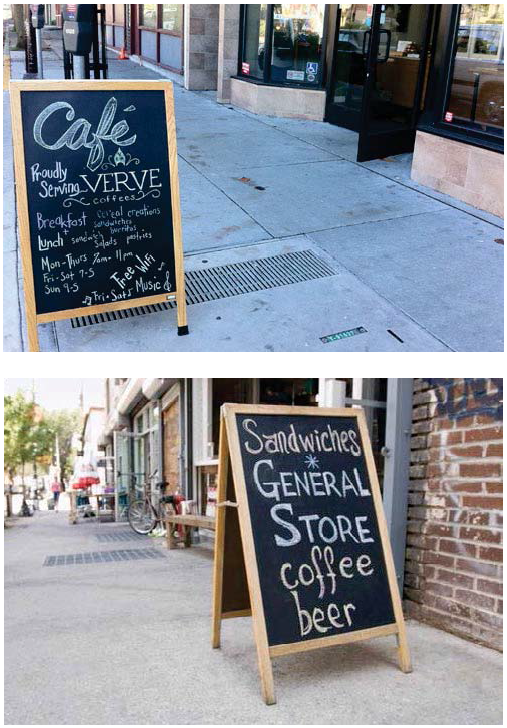 Café
Proudly
Serving VERVE
coffees
Breakfast cereal creations
+ sandwiches
Lunch sandwich burritos
salads pastries
Mon-Thurs 7am-11pm
Fri-Sat 7-5
Sun 9-5
Free WiFi
Fri+Sats Music
Sandwiches
GENERAL
STORE
coffee
beer